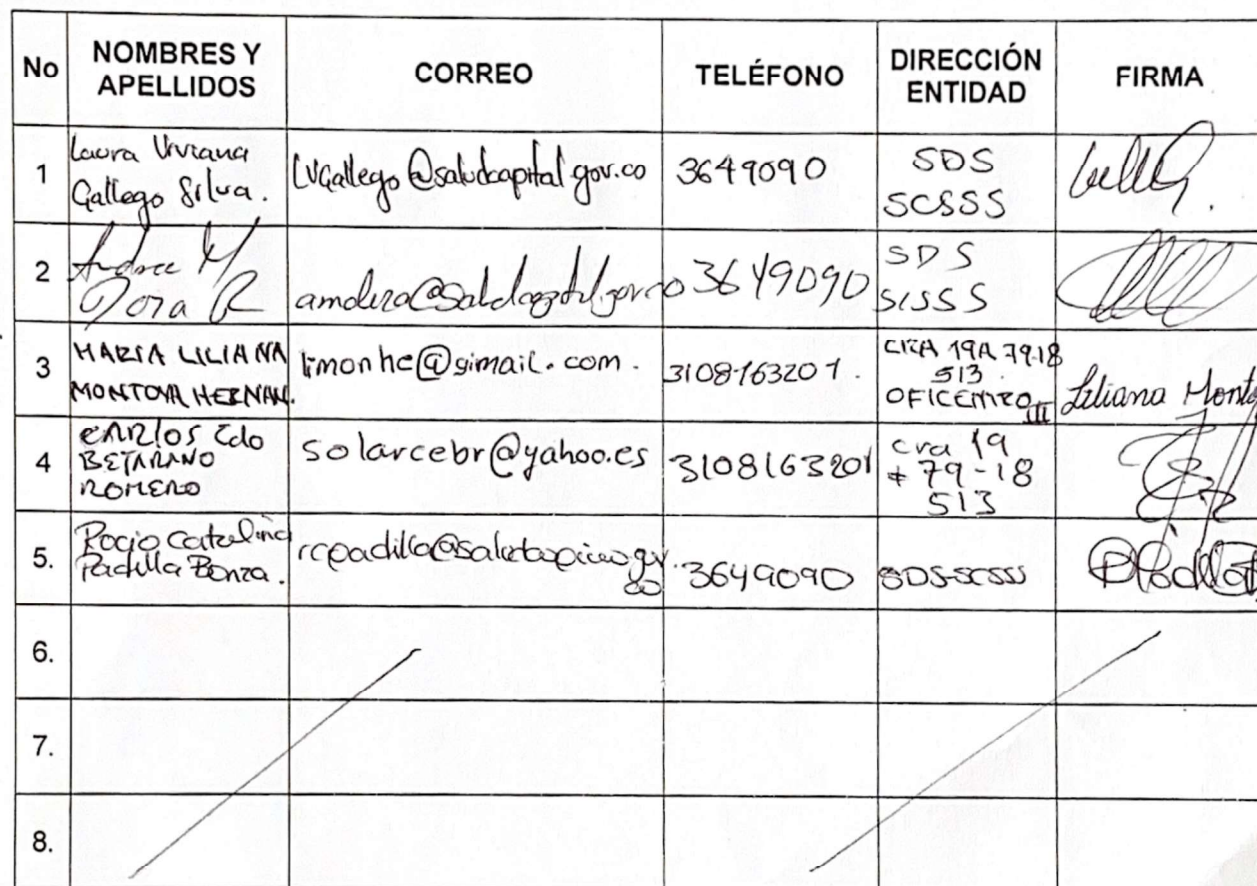 No NOMBRES Y APELLIDOS CORREO TELÉFONO DIRECCIÓN ENTIDAD FIRMA
1 Laura Viviana Gallego Silva. LVGallego@saludcapital.gov.co 3649090 SDS SCSSS
2 3649090 SDS SCSSS
3 MARIA LILIANA MONTOYA HERNAN. limonhe@gimail.com. 3108163201. CRA 19A 79-18 513 OFICENTRO III Liliana Monto
4 CARLOS Edo BEJARANO ROMERO solarcebr@yahoo.es 3108163201 Cra 19 # 79-18 513
5. Rocio Catalina Padilla Bonza. 3649090 SDS-SCSSS
6.
7.
8.